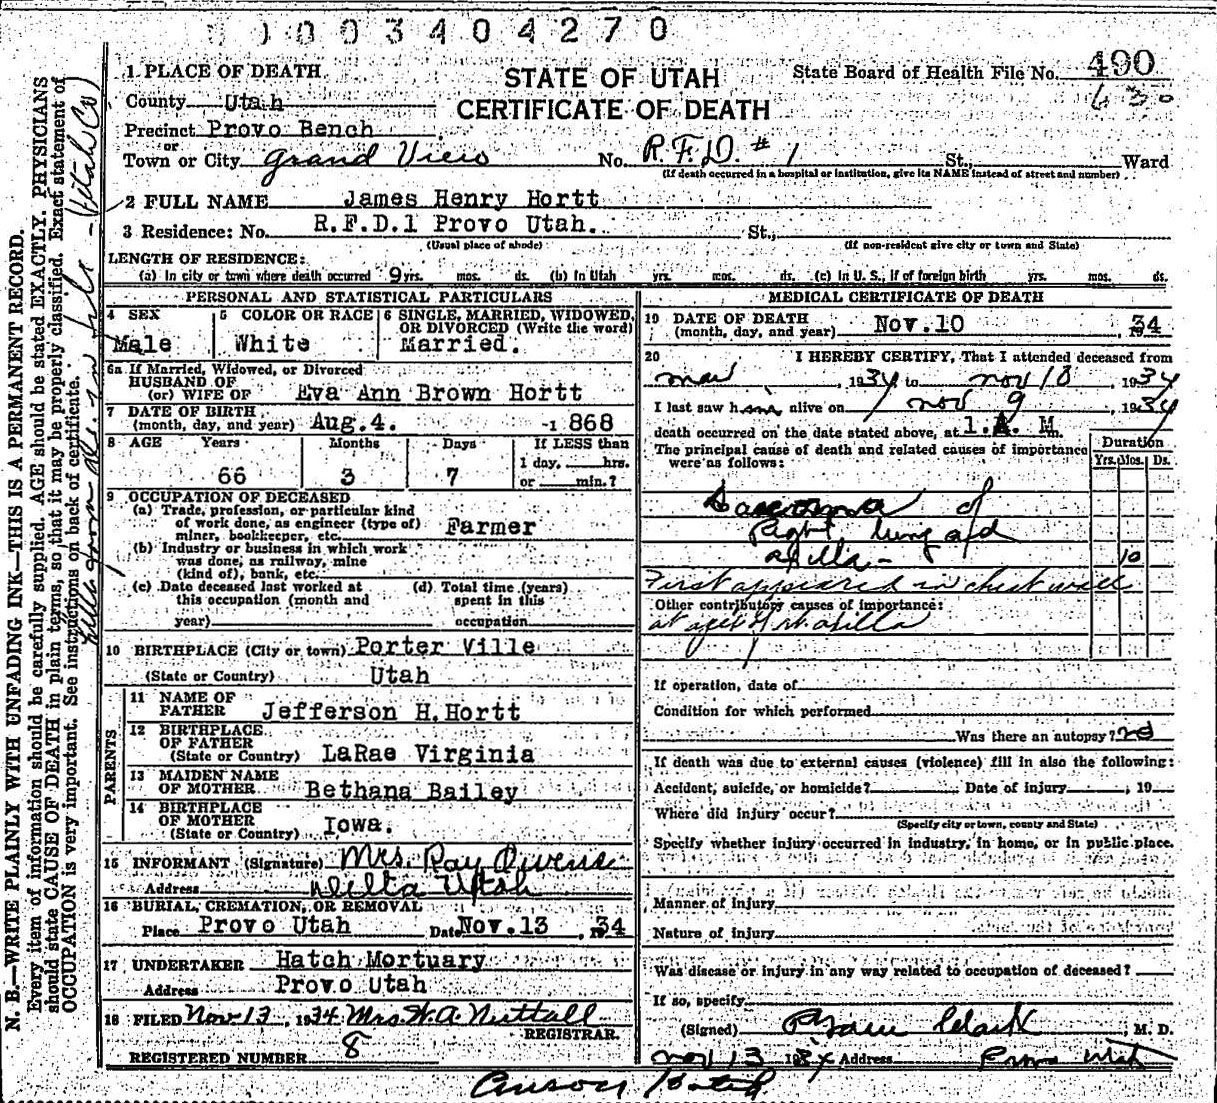 0003404270
490
630
STATE OF UTAH
CERTIFICATE OF DEATH
State Board of Health File No. 490
1 PLACE OF DEATH
County Utah
Precinct Provo Bench
or
Town or City Grand View No. R.F.D. # 1 St., Ward
(If death occurred in a hospital or institution, give its NAME instead of street and number)
2 FULL NAME James Henry Hortt
3 Residence: No. R.F.D.1 Provo Utah. St.,
(Usual place of abode) (If non-resident give city or town and State)
LENGTH OF RESIDENCE:
(a) In city or town where death occurred 9 yrs. mos. ds. (b) In Utah yrs. mos. ds. (c) In U. S., if of foreign birth yrs. mos. ds.
PERSONAL AND STATISTICAL PARTICULARS
4 SEX Male
5 COLOR OR RACE White
6 SINGLE, MARRIED, WIDOWED, OR DIVORCED (Write the word) Married.
6a If Married, Widowed, or Divorced
HUSBAND OF
(or) WIFE OF Eva Ann Brown Hortt
7 DATE OF BIRTH
(month, day, and year) Aug.4. -1 868
8 AGE Years Months Days If LESS than
66 3 7 1 day, hrs.
or min.?
9 OCCUPATION OF DECEASED
(a) Trade, profession, or particular kind
of work done, as engineer (type of)
miner, bookkeeper, etc. Farmer
(b) Industry or business in which work
was done, as railway, mine
(kind of), bank, etc.
(c) Date deceased last worked at
this occupation (month and
year)
(d) Total time (years)
spent in this
occupation
10 BIRTHPLACE (City or town) Porter Ville
(State or Country) Utah
PARENTS
11 NAME OF
FATHER Jefferson H.Hortt
12 BIRTHPLACE
OF FATHER
(State or Country) LaRae Virginia
13 MAIDEN NAME
OF MOTHER Bethana Bailey
14 BIRTHPLACE
OF MOTHER
(State or Country) Iowa.
15 INFORMANT (Signature) Mrs. Ray Owens
Address Delta Utah
16 BURIAL, CREMATION, OR REMOVAL
Place Provo Utah Date Nov.13 , 1934
17 UNDERTAKER Hatch Mortuary
Address Provo Utah
18 FILED Nov. 13, 1934 Mrs. W. A. Nuttall
REGISTRAR.
REGISTERED NUMBER 8
MEDICAL CERTIFICATE OF DEATH
19 DATE OF DEATH
(month, day, and year) Nov.10 , 1934
20 I HEREBY CERTIFY, That I attended deceased from
, 1934 to Nov 10 , 1934
I last saw him alive on Nov 9 , 1934
death occurred on the date stated above, at 1.A. M.
The principal cause of death and related causes of importance
were as follows:
Duration
Yrs. Mos. Ds.
of
Right lung and
axilla - 10
First appeared in chest wall
Other contributory causes of importance:
at apex of rt. axilla
If operation, date of
Condition for which performed
Was there an autopsy? no
If death was due to external causes (violence) fill in also the following:
Accident, suicide, or homicide? Date of injury , 19
Where did injury occur?
(Specify city or town, county and State)
Specify whether injury occurred in industry, in home, or in public place.
Manner of injury
Nature of injury
Was disease or injury in any way related to occupation of deceased?
If so, specify
(Signed) Clark , M. D.
Nov 13 1934 Address Provo Utah
N. B.—WRITE PLAINLY WITH UNFADING INK—THIS IS A PERMANENT RECORD.
Every item of information should be carefully supplied. AGE should be stated EXACTLY. PHYSICIANS
should state CAUSE OF DEATH in plain terms, so that it may be properly classified. Exact statement of
OCCUPATION is very important. See instructions on back of certificate.